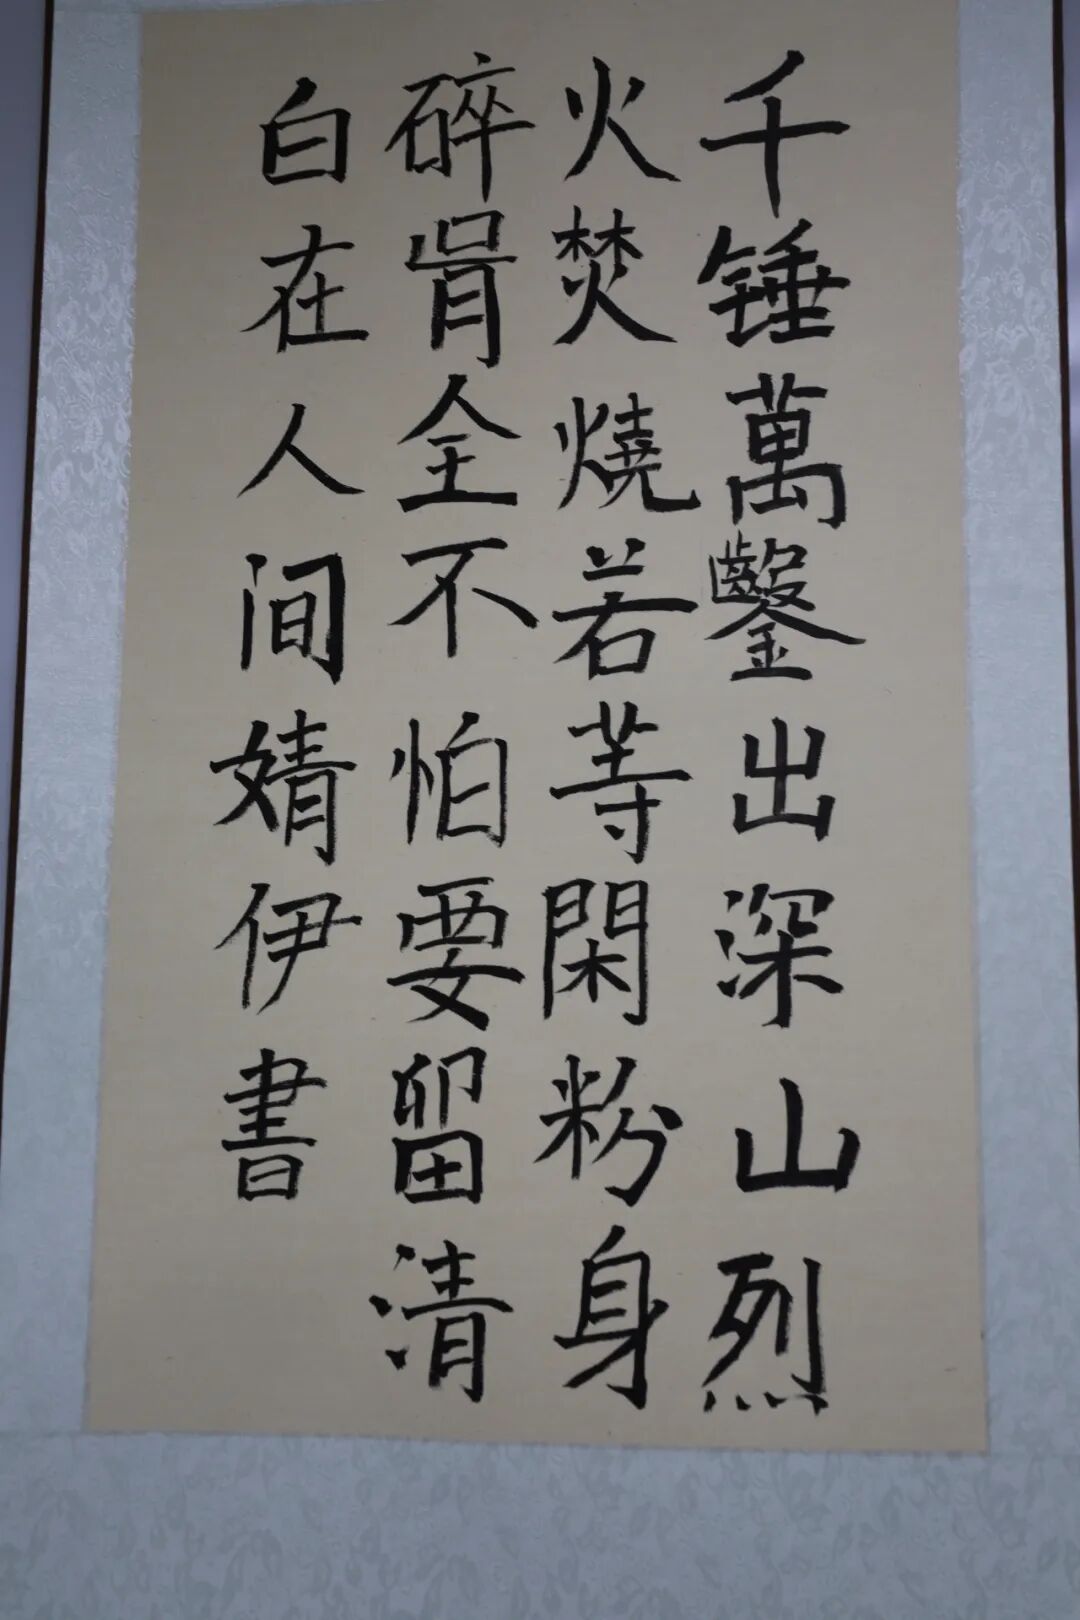 千锤萬鑿出深山烈
火焚燒若等閑粉身
碎骨全不怕要留清
白在人间婧伊書